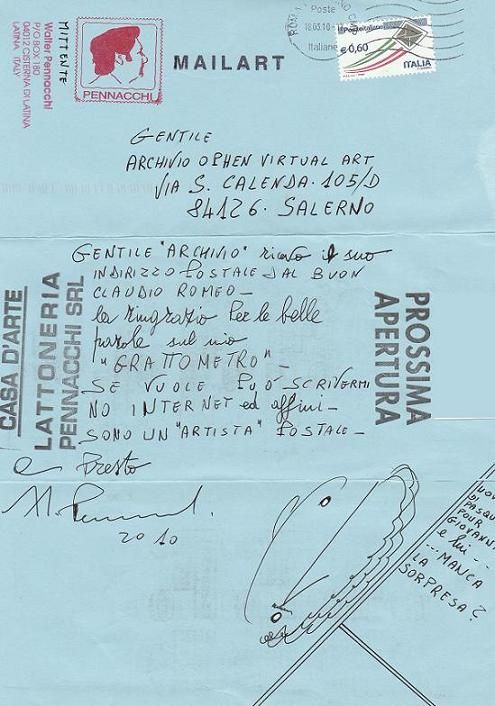 Walter Pennacchi
P/O BOX 180
04012 CISTERNA DI LATINA
LATINA ITALY
MITTENTE
PENNACCHI
MAILART
Poste
18.03.10
Italiane
Posteitaliane
€ 0,60
ITALIA
GENTILE
ARCHIVIO OPHEN VIRTUAL ART
VIA S. CALENDA. 105/D
84126. SALERNO
GENTILE "ARCHIVIO" ricevo il suo
INDIRIZZO POSTALE DAL BUON
CLAUDIO ROMEO_
la ringrazio per le belle
parole sul mio
"GRATTOMETRO"_
SE VUOLE PUÒ SCRIVERMI
NO INTERNET ed affini_
SONO UN "ARTISTA" POSTALE_
a Presto
2010
CASA D'ARTE
LATTONERIA
PENNACCHI SRL
PROSSIMA
APERTURA
DI PASQU
POUR
GIOVANNI
e lui..
... MANCA
LA
SORPRESA?